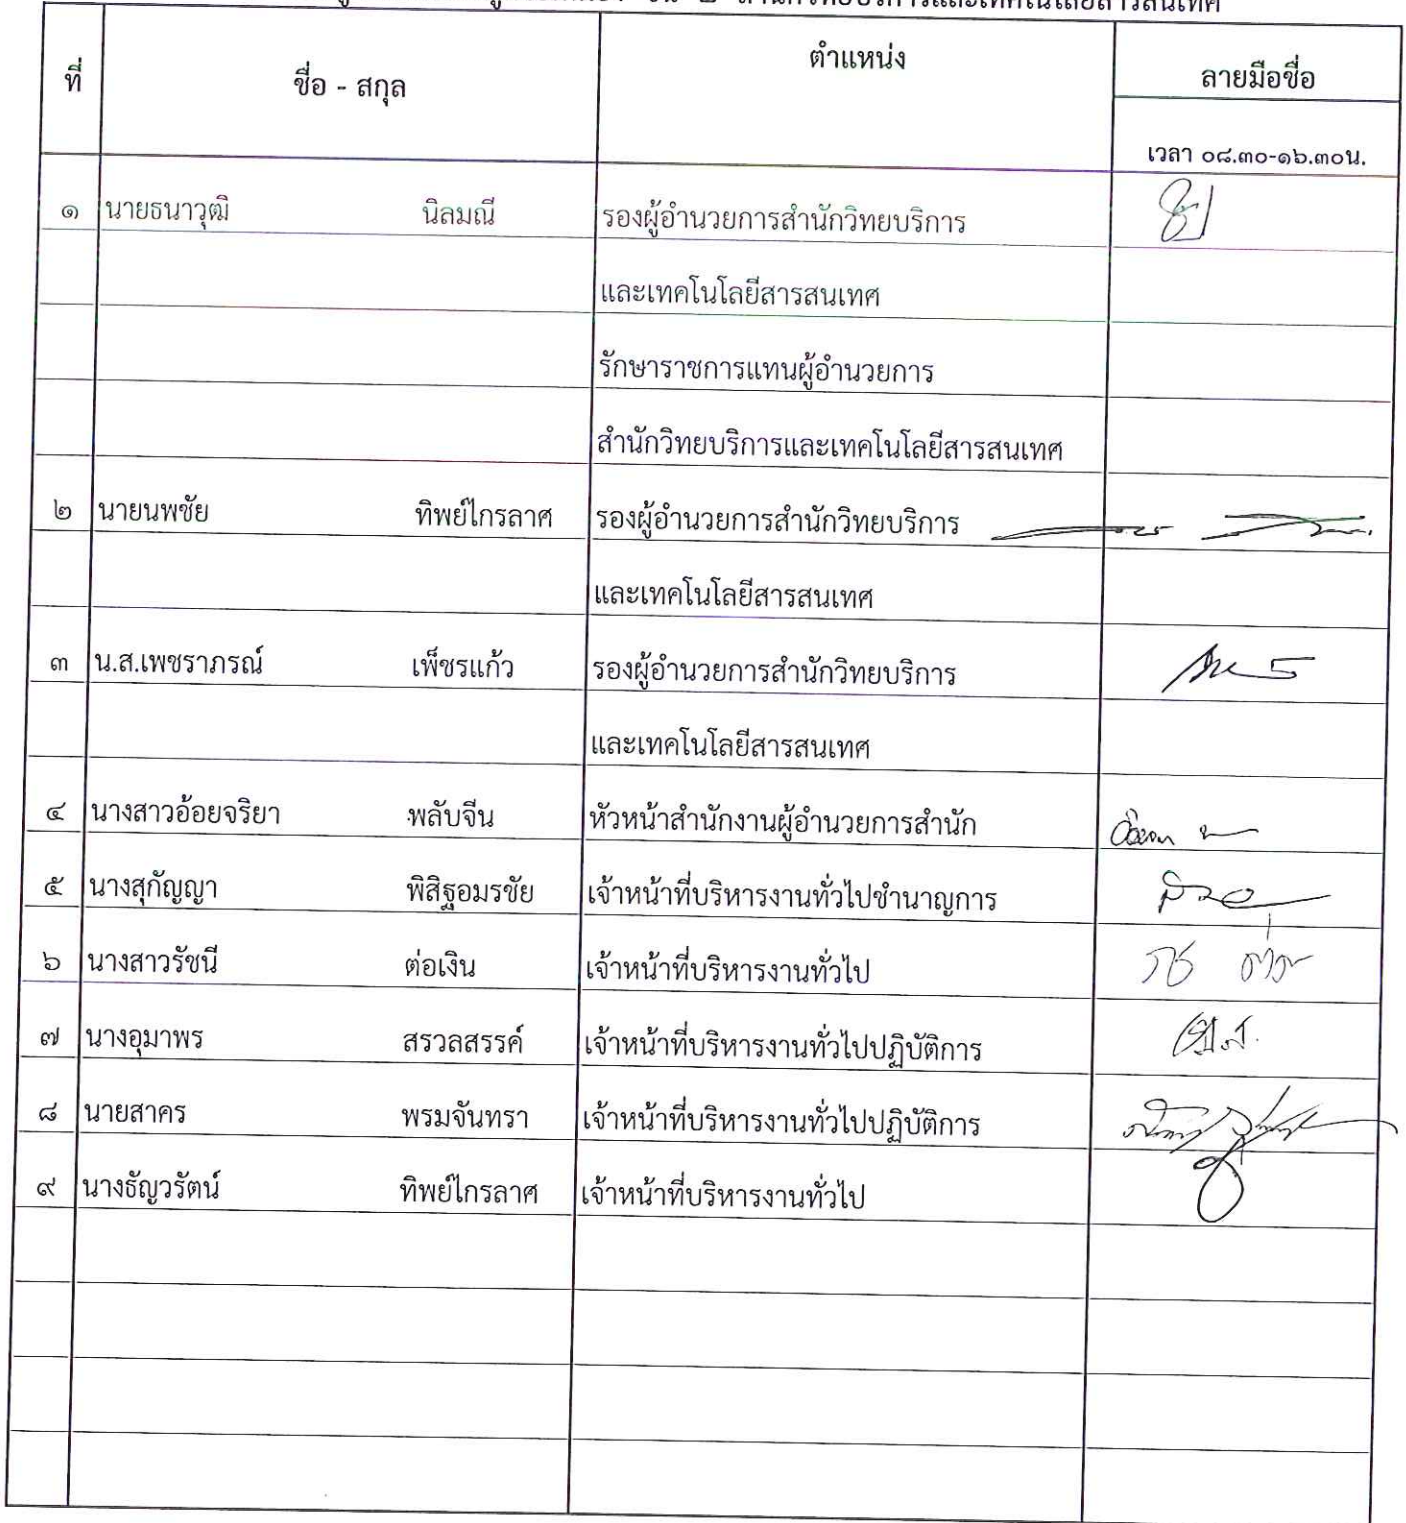 สำนักวิทยบริการและเทคโนโลยีสารสนเทศ
ที่ ชื่อ - สกุล ตำแหน่ง ลายมือชื่อ
เวลา ๐๘.๓๐-๑๖.๓๐น.
๑ นายธนาวุฒิ นิลมณี รองผู้อำนวยการสำนักวิทยบริการ
และเทคโนโลยีสารสนเทศ
รักษาราชการแทนผู้อำนวยการ
สำนักวิทยบริการและเทคโนโลยีสารสนเทศ
๒ นายนพชัย ทิพย์ไกรลาศ รองผู้อำนวยการสำนักวิทยบริการ
และเทคโนโลยีสารสนเทศ
๓ น.ส.เพชราภรณ์ เพ็ชรแก้ว รองผู้อำนวยการสำนักวิทยบริการ
และเทคโนโลยีสารสนเทศ
๔ นางสาวอ้อยจริยา พลับจีน หัวหน้าสำนักงานผู้อำนวยการสำนัก
๕ นางสุกัญญา พิสิฐอมรชัย เจ้าหน้าที่บริหารงานทั่วไปชำนาญการ
๖ นางสาวรัชนี ต่อเงิน เจ้าหน้าที่บริหารงานทั่วไป
๗ นางอุมาพร สรวลสรรค์ เจ้าหน้าที่บริหารงานทั่วไปปฏิบัติการ
๘ นายสาคร พรมจันทรา เจ้าหน้าที่บริหารงานทั่วไปปฏิบัติการ
๙ นางธัญวรัตน์ ทิพย์ไกรลาศ เจ้าหน้าที่บริหารงานทั่วไป